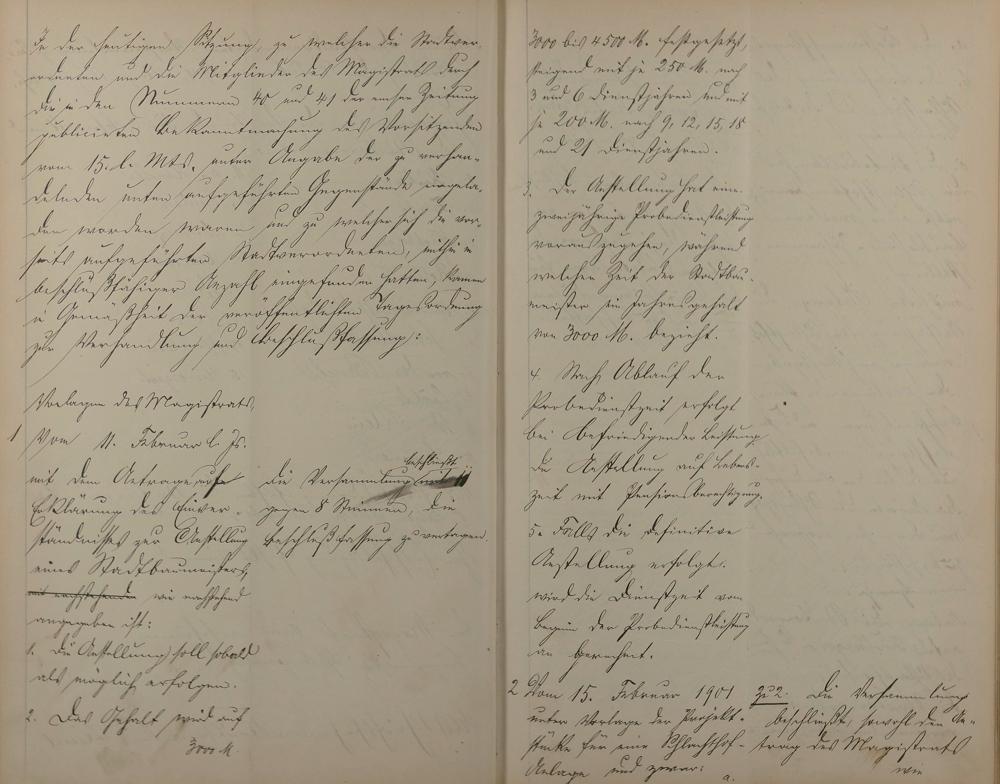 In der heutigen Sitzung, zu welcher die Stadtver-
ordneten und die Mitglieder des Magistrats durch
die in den Nummern 40 und 41 der Emser Zeitung
publicirten Bekanntmachung des Vorsitzenden
vom 15. l. Mts. unter Angabe der zu verhan-
delnden unten aufgeführten Gegenstände eingela-
den worden waren und zu welcher sich die vor-
seits aufgeführten Stadtverordneten, mithin in
beschlußfähiger Anzahl eingefunden hatten, kamen
in Gemäßheit der veröffentlichten Tagesordnung
zur Verhandlung und Beschlußfassung:
Vorlagen des Magistrats.
1 Vom 11. Februar l. Js.
mit dem Antrage auf
Erklärung des Einver-
ständnisses zur Anstellung
eines Stadtbaumeisters,
mit nachstehenden wie nachstehend
angegeben ist:
1. Die Anstellung soll sobald
als möglich erfolgen.
2. Das Gehalt wird auf
3000 M.
beschließt
Die Versammlung mit 11
gegen 8 Stimmen, die
Beschlußfassung zu vertagen.
3000 bis 4500 M. festgesetzt,
steigend mit je 250 M. nach
3 und 6 Dienstjahren und mit
je 200 M. nach 9, 12, 15, 18
und 21 Dienstjahren.
3. Der Anstellung hat eine
zweijährige Probedienstleistung
vorauszugehen, während
welcher Zeit der Stadtbau-
meister ein Jahresgehalt
von 3000 M. bezieht.
4. Nach Ablauf der
Probedienstzeit erfolgt
bei befriedigender Leistung
die Anstellung auf Lebens-
zeit mit Pensionsberechtigung.
5. Falls die definitive
Anstellung erfolgt,
wird die Dienstzeit vom
Beginn der Probedienstleistung
an gerechnet.
2 Vom 15. Februar 1901
unter Vorlage der Projekt-
stücke für eine Schlachthof-
Anlage und zwar:
a.
zu 2. Die Versammlung
beschließt, sowohl den An-
trag des Magistrats
wie